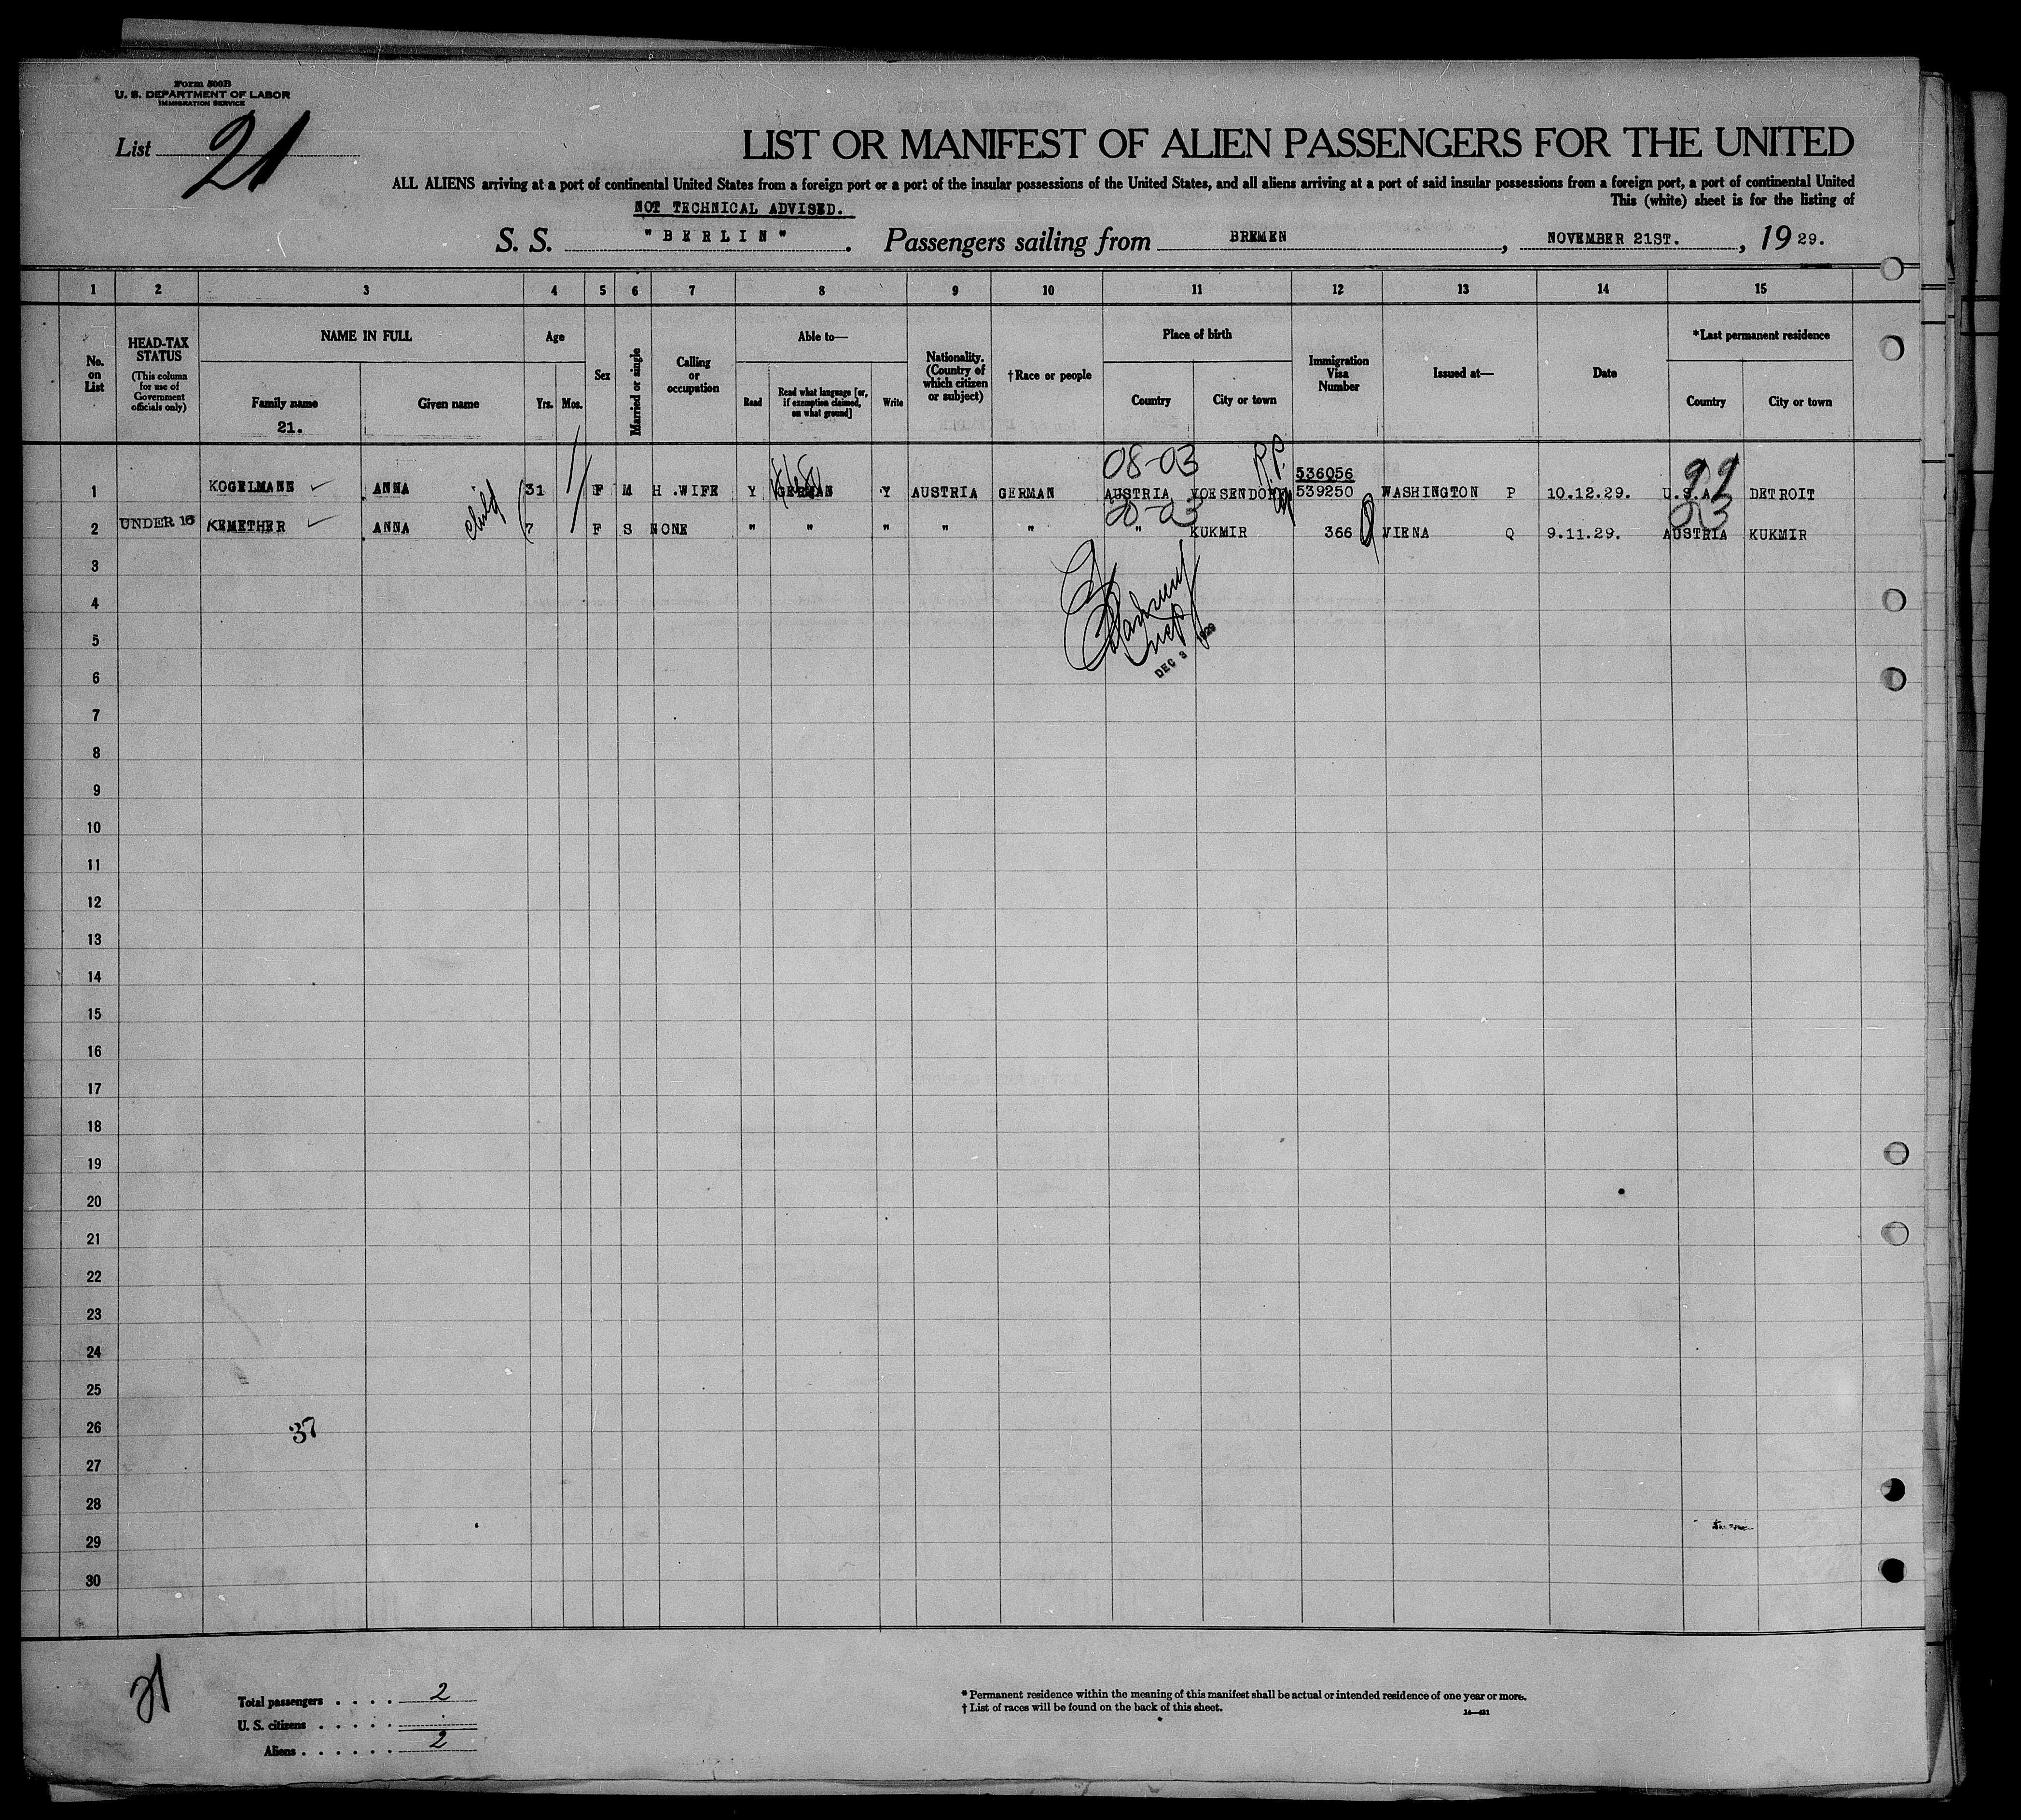 Form 500B
U. S. DEPARTMENT OF LABOR
IMMIGRATION SERVICE
List 21
LIST OR MANIFEST OF ALIEN PASSENGERS FOR THE UNITED
ALL ALIENS arriving at a port of continental United States from a foreign port or a port of the insular possessions of the United States, and all aliens arriving at a port of said insular possessions from a foreign port, a port of continental United
This (white) sheet is for the listing of
NOT TECHNICAL ADVISED.
S. S. "BERLIN". Passengers sailing from BREMEN, NOVEMBER 21ST., 1929.
1 2 3 4 5 6 7 8 9 10 11 12 13 14 15
No. on List
HEAD-TAX STATUS
(This column for use of Government officials only)
NAME IN FULL
Family name
21.
Given name
Age
Yrs. Mos.
Sex
Married or single
Calling or occupation
Able to—
Read
Read what language [or, if exemption claimed, on what ground]
Write
Nationality. (Country of which citizen or subject)
†Race or people
Place of birth
Country
City or town
Immigration Visa Number
Issued at—
Date
*Last permanent residence
Country
City or town
08-03 P.P. 536056 99
1 KOGELMANN ANNA 31 F M H.WIFE Y GERMAN Y AUSTRIA GERMAN AUSTRIA VOESENDORF 539250 WASHINGTON P 10.12.29. U.S.A. DETROIT
child
20-03 03
2 UNDER 16 KEMETHER ANNA 7 F S NONE " " " " " " KUKMIR 366 VIENA Q 9.11.29. AUSTRIA KUKMIR
3
4
5
DEC 3 1929
6
7
8
9
10
11
12
13
14
15
16
17
18
19
20
21
22
23
24
25
26 37
27
28
29
30
21
Total passengers . . . . 2
U. S. citizens . . . . .
Aliens . . . . . . 2
* Permanent residence within the meaning of this manifest shall be actual or intended residence of one year or more.
† List of races will be found on the back of this sheet.
14—421